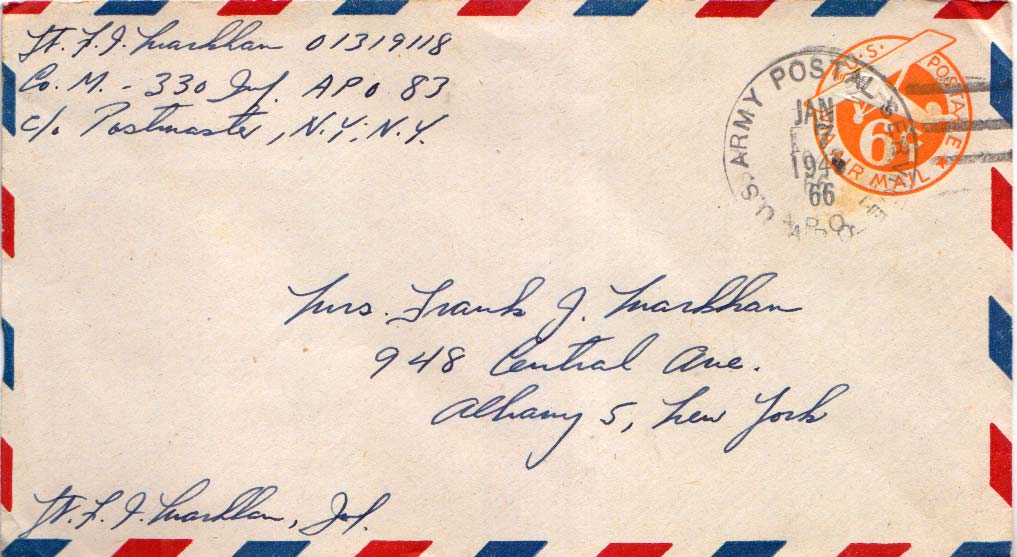 Lt. F. J. Markham 01319118
Co. M. - 330 Inf. APO 83
c/o Postmaster, N.Y., N.Y.
U.S. ARMY POSTAL SERVICE
JAN
194
66
A.P.O.
U.S. POSTAGE
6
AIR MAIL
Mrs. Frank J. Markham
948 Central Ave.
Albany 5, New York
Lt. F. J. Markham, Inf.